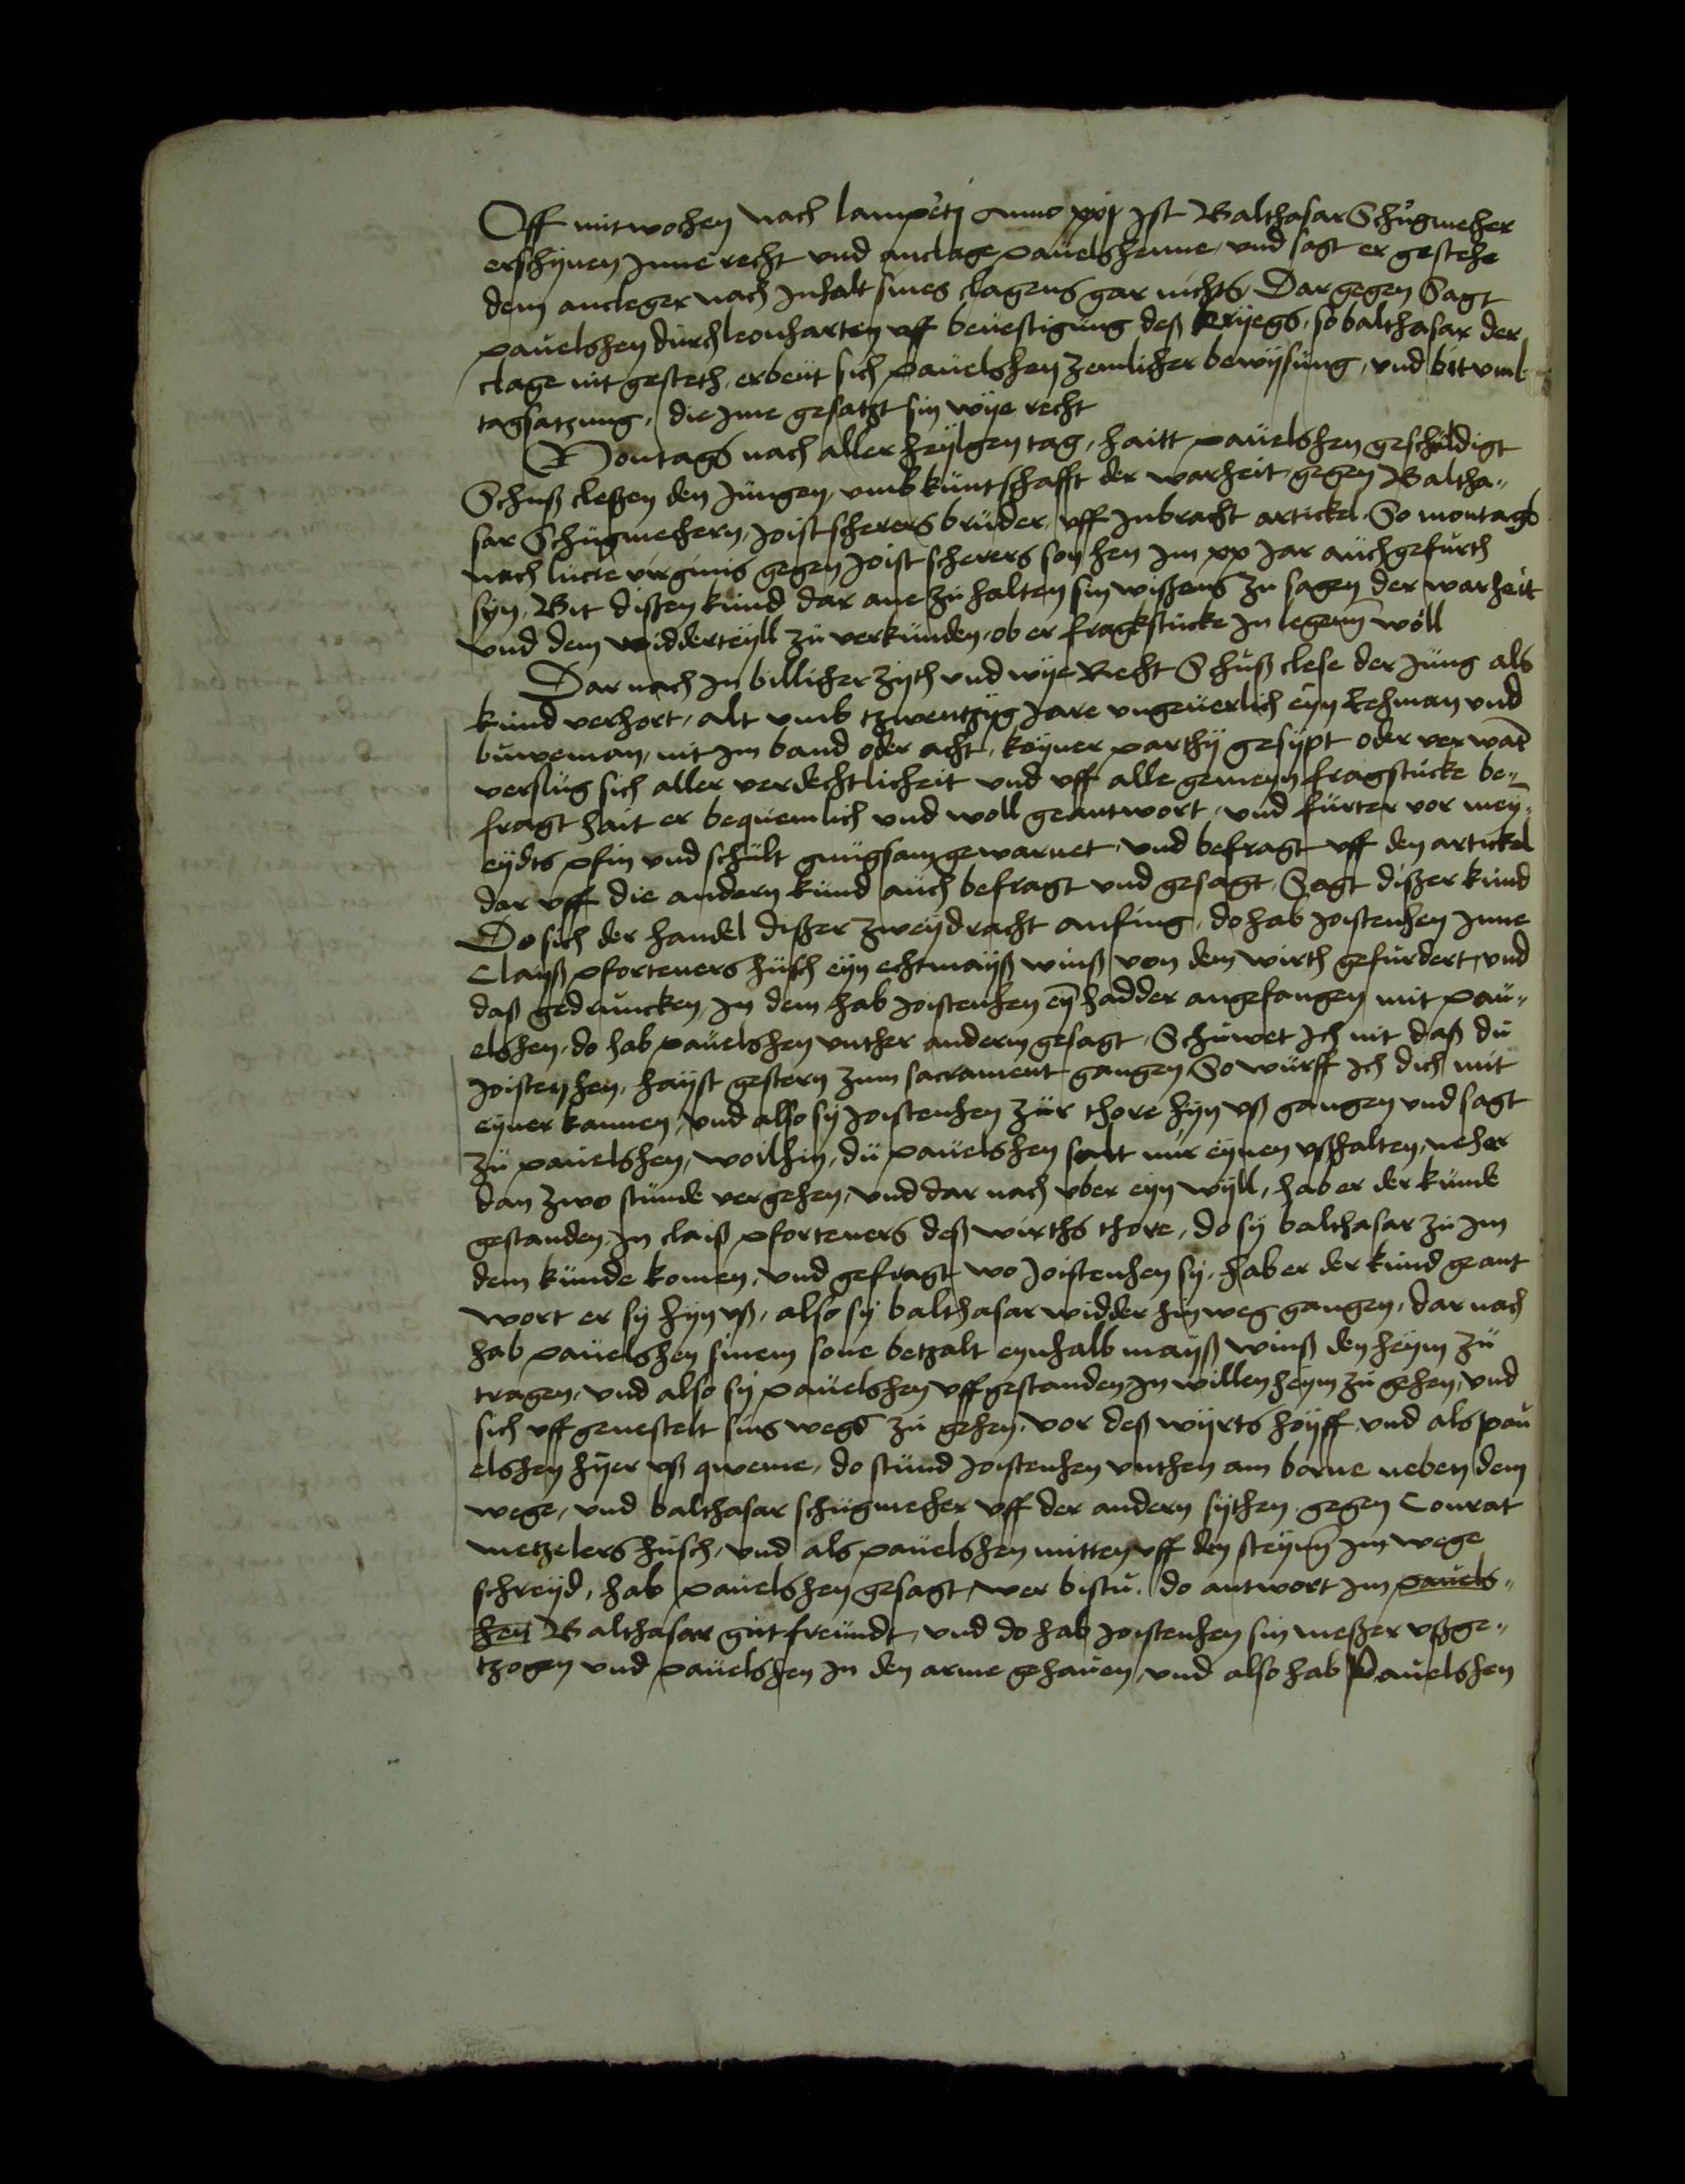 Off mitwochen nach lamperti Anno xxj ist Balthasar Schügmecher
erschynen Inne recht und anclage pauelshenne und sagt er gestehe
dem ancleger nach Inhalt sines clagens gar nichts Dargegen Sagt
pauelshen durch leonharten uff beuestigung deß kryegs, so balthasar der
clage nit gesteth, erbeüt sich pauelshen zemlicher bewysüng, und bit umb
tagsatzung, die Ime gesatzt sin wye recht
Montags nach aller heylgen tag, haitt pauelshen geschuldigt
Schuß cleßen den Jüngen, umb küntschafft der warheit gegen Baltha"
sar Schügmechern, Joist scherers brüder, uff Inbracht artickel So montags
nach lucie virginis gegen Joist scherers son hen Im xx Jar auch gefurth
syn, Bit dißen kund dar ane zu halten sin wißens zu sagen der warheit
und dem widderteyll zü verkunden, ob er fragkstucke In legenn wöll
Dar nach In billicher zyth und wye Recht Schuß clese der Jüng als
kund verhort, alt umb tzwentzyg Jare ungeuerlich eyn lehman und
buweman, nit Im band oder acht, keyner parthy gesypt oder verwant
verslug sich aller verdechtlicheit und uff alle gemeyn fragstucke be"
fragt hait er bequemlich und woll geantwort, und fürter vor mey"
eydts pfin und schult gnügsam gewarnet, und befragt uff den artickel
dar uff die andern kund auch befragt und gesagt, Sagt dißer kund
Do sich der handel dißer zweydracht anfing, do hab Joistenhen Inne
Clayß pforteners hüsch eyn echtmayß winß von dem wirth gefurdert, und
daß gedruncken, In dem hab Joistenhen eyn hadder angefangen mit pau"
elshen, do hab pauelshen unther anderm gesagt, Schuwet Ich nit daß du
Joisten hen, hayst gestern zum sacrament gangen So wurff Ich dich mit
eyner kannen, und also sy Joistenhen zür thore hyn uß gangen und sagt
zu pauelshen, woilhin, du pauelshen salt mir eynen ußhalten, neher
dan zwo stunde vergehen, und dar nach uber eyn wyll, hab er der kunde
gestanden, In claiß pforteners deß wirths thore, do sy balthasar zu Im
dem künde komen, und gefragt wo Joistenhen sy, hab er der kund geant
wort er sy hyn uß, also sy balthasar widder hinweg gangen, dar nach
hab pauelshen sinem sone betzalt eynhalb mayß winß den heym zü
tragen, und also sy pauelshen uffgestanden In willen heym zu gehen, und
sich uff genestelt sins wegs zu gehen, vor deß wyrts hoyff, und als pau
elshen hyer uß qweme, do stund Joistenhen unthen am borne neben dem
wege, und balthasar schügmecher uff der andern sythen gegen Conrat
metzelers hüsch, und als pauelshen mitten uff den steynn Im wege
schreyd, hab pauelshen gesagt, wer bistu, do antwort Im pauels"
hen Balthasar gut freundt, und do hab Joistenhen sin meßer ußge"
tzogen und pauelshen In den arme gehauen, und also hab Pauelshen